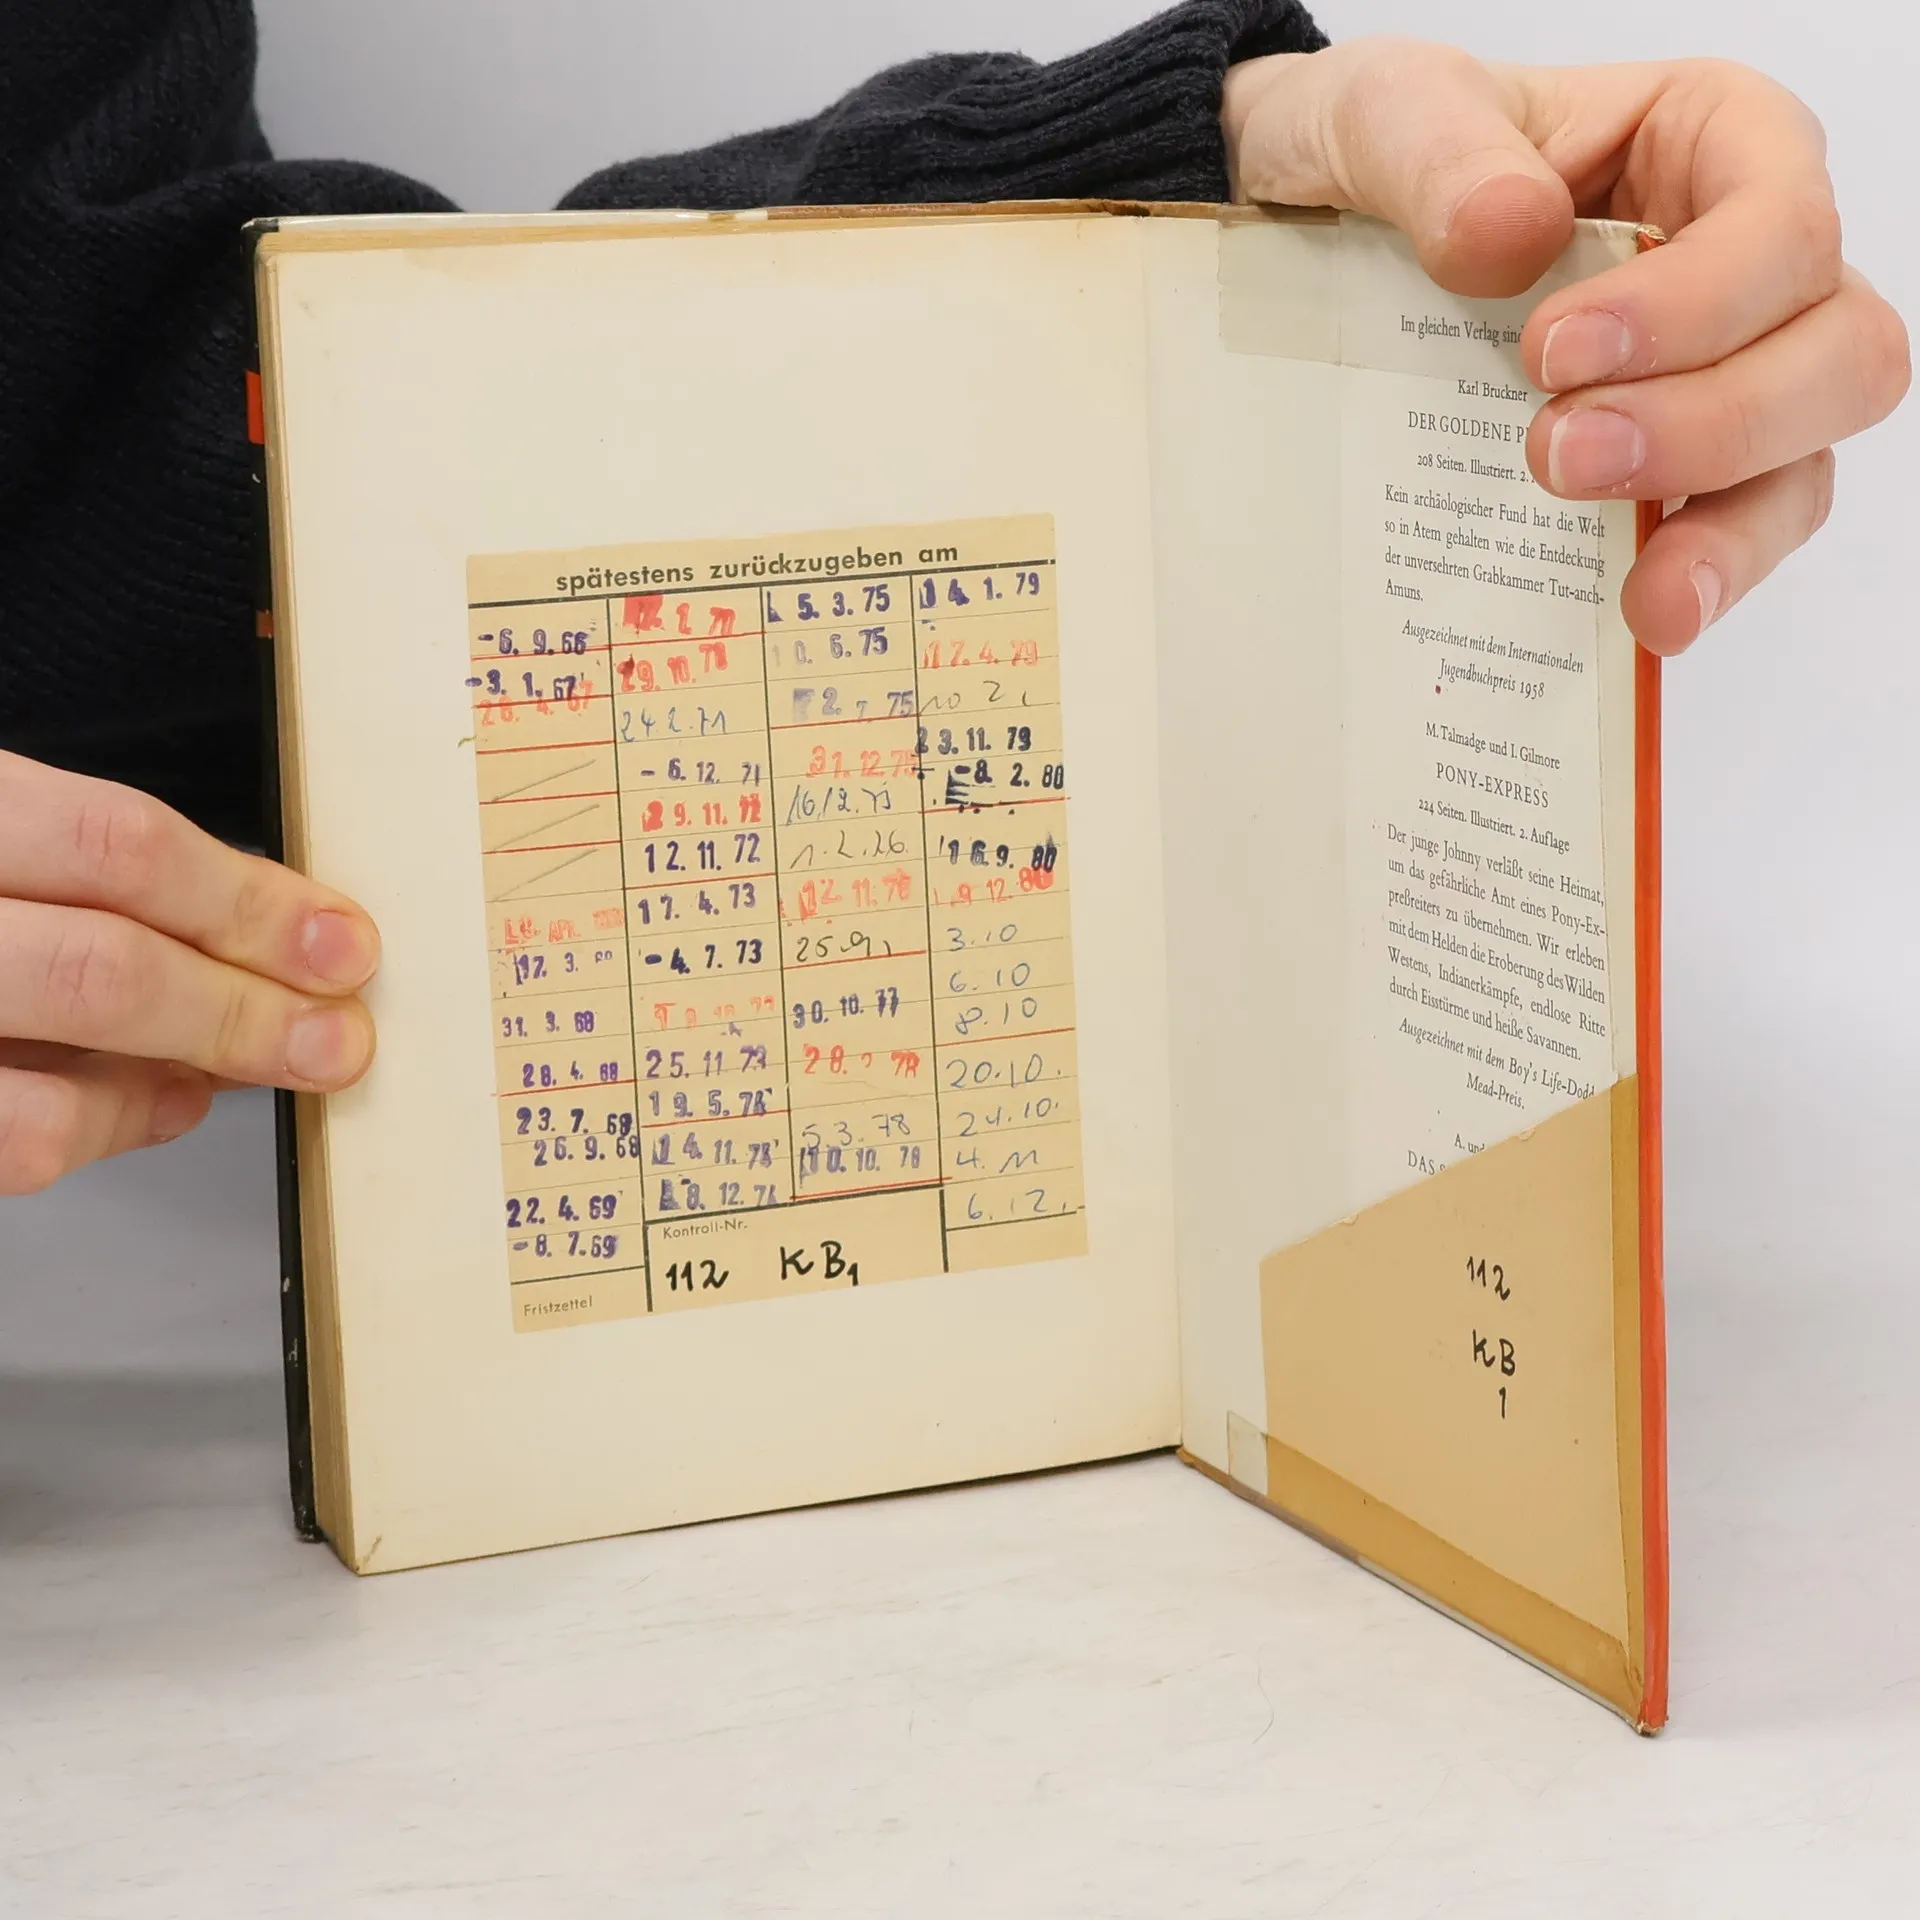 spätestens zurückzugeben am
-6. 9. 66
-3. 1. 67
28. 4. 67
APR.
17. 3.
31. 3. 68
28. 4. 68
23. 7. 68
26. 9. 68
22. 4. 69
-8. 7. 69
29. 10. 70
24. 2. 71
-6. 12. 71
29. 11. 72
12. 11. 72
17. 4. 73
-4. 7. 73
25. 11. 73
19. 5. 74
14. 11. 74
18. 12. 74
5. 3. 75
10. 6. 75
75
31. 12. 75
16/12. 75
1. 2. 76
12. 11. 76
25. 9.
30. 10. 77
28. 78
5. 3. 78
10. 10. 78
14. 1. 79
17. 4. 79
10 2.
23. 11. 79
-8. 2. 80
16. 9. 80
1.9 12. 80
3. 10
6. 10
8. 10
20. 10.
24. 10.
4. 11
6. 12.
Kontroll-Nr.
112 KB1
Fristzettel
Im gleichen Verlag sind
Karl Bruckner
DER GOLDENE
208 Seiten. Illustriert. 2.
Kein archäologischer Fund hat die Welt
so in Atem gehalten wie die Entdeckung
der unversehrten Grabkammer Tut-anch-
Amuns.
Ausgezeichnet mit dem Internationalen
Jugendbuchpreis 1958
M. Talmadge und I. Gilmore
PONY-EXPRESS
224 Seiten. Illustriert. 2. Auflage
Der junge Johnny verläßt seine Heimat,
um das gefährliche Amt eines Pony-Ex-
preßreiters zu übernehmen. Wir erleben
mit dem Helden die Eroberung des Wilden
Westens, Indianerkämpfe, endlose Ritte
durch Eisstürme und heiße Savannen.
Ausgezeichnet mit dem Boy's Life-Dodd
Mead-Preis.
A. und
DAS
112
KB
1